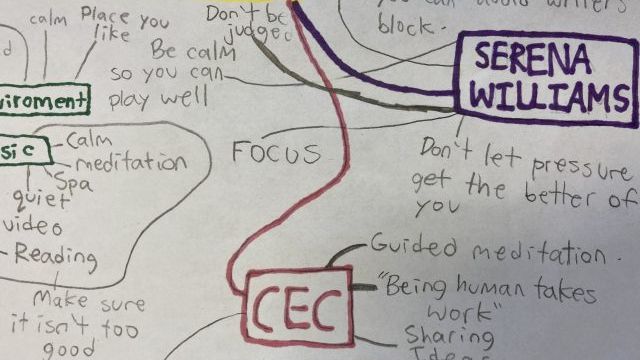 calm
Place you
like
Don't be
judged
block.
SERENA
WILLIAMS
Be calm
so you can
play well
FOCUS
Don't let pressure
get the better of
you
Calm
meditation
Spa
quiet
video
Reading
Make sure
it isn't too
good
CEC
Guided meditation.
"Being human takes
work"
Sharing